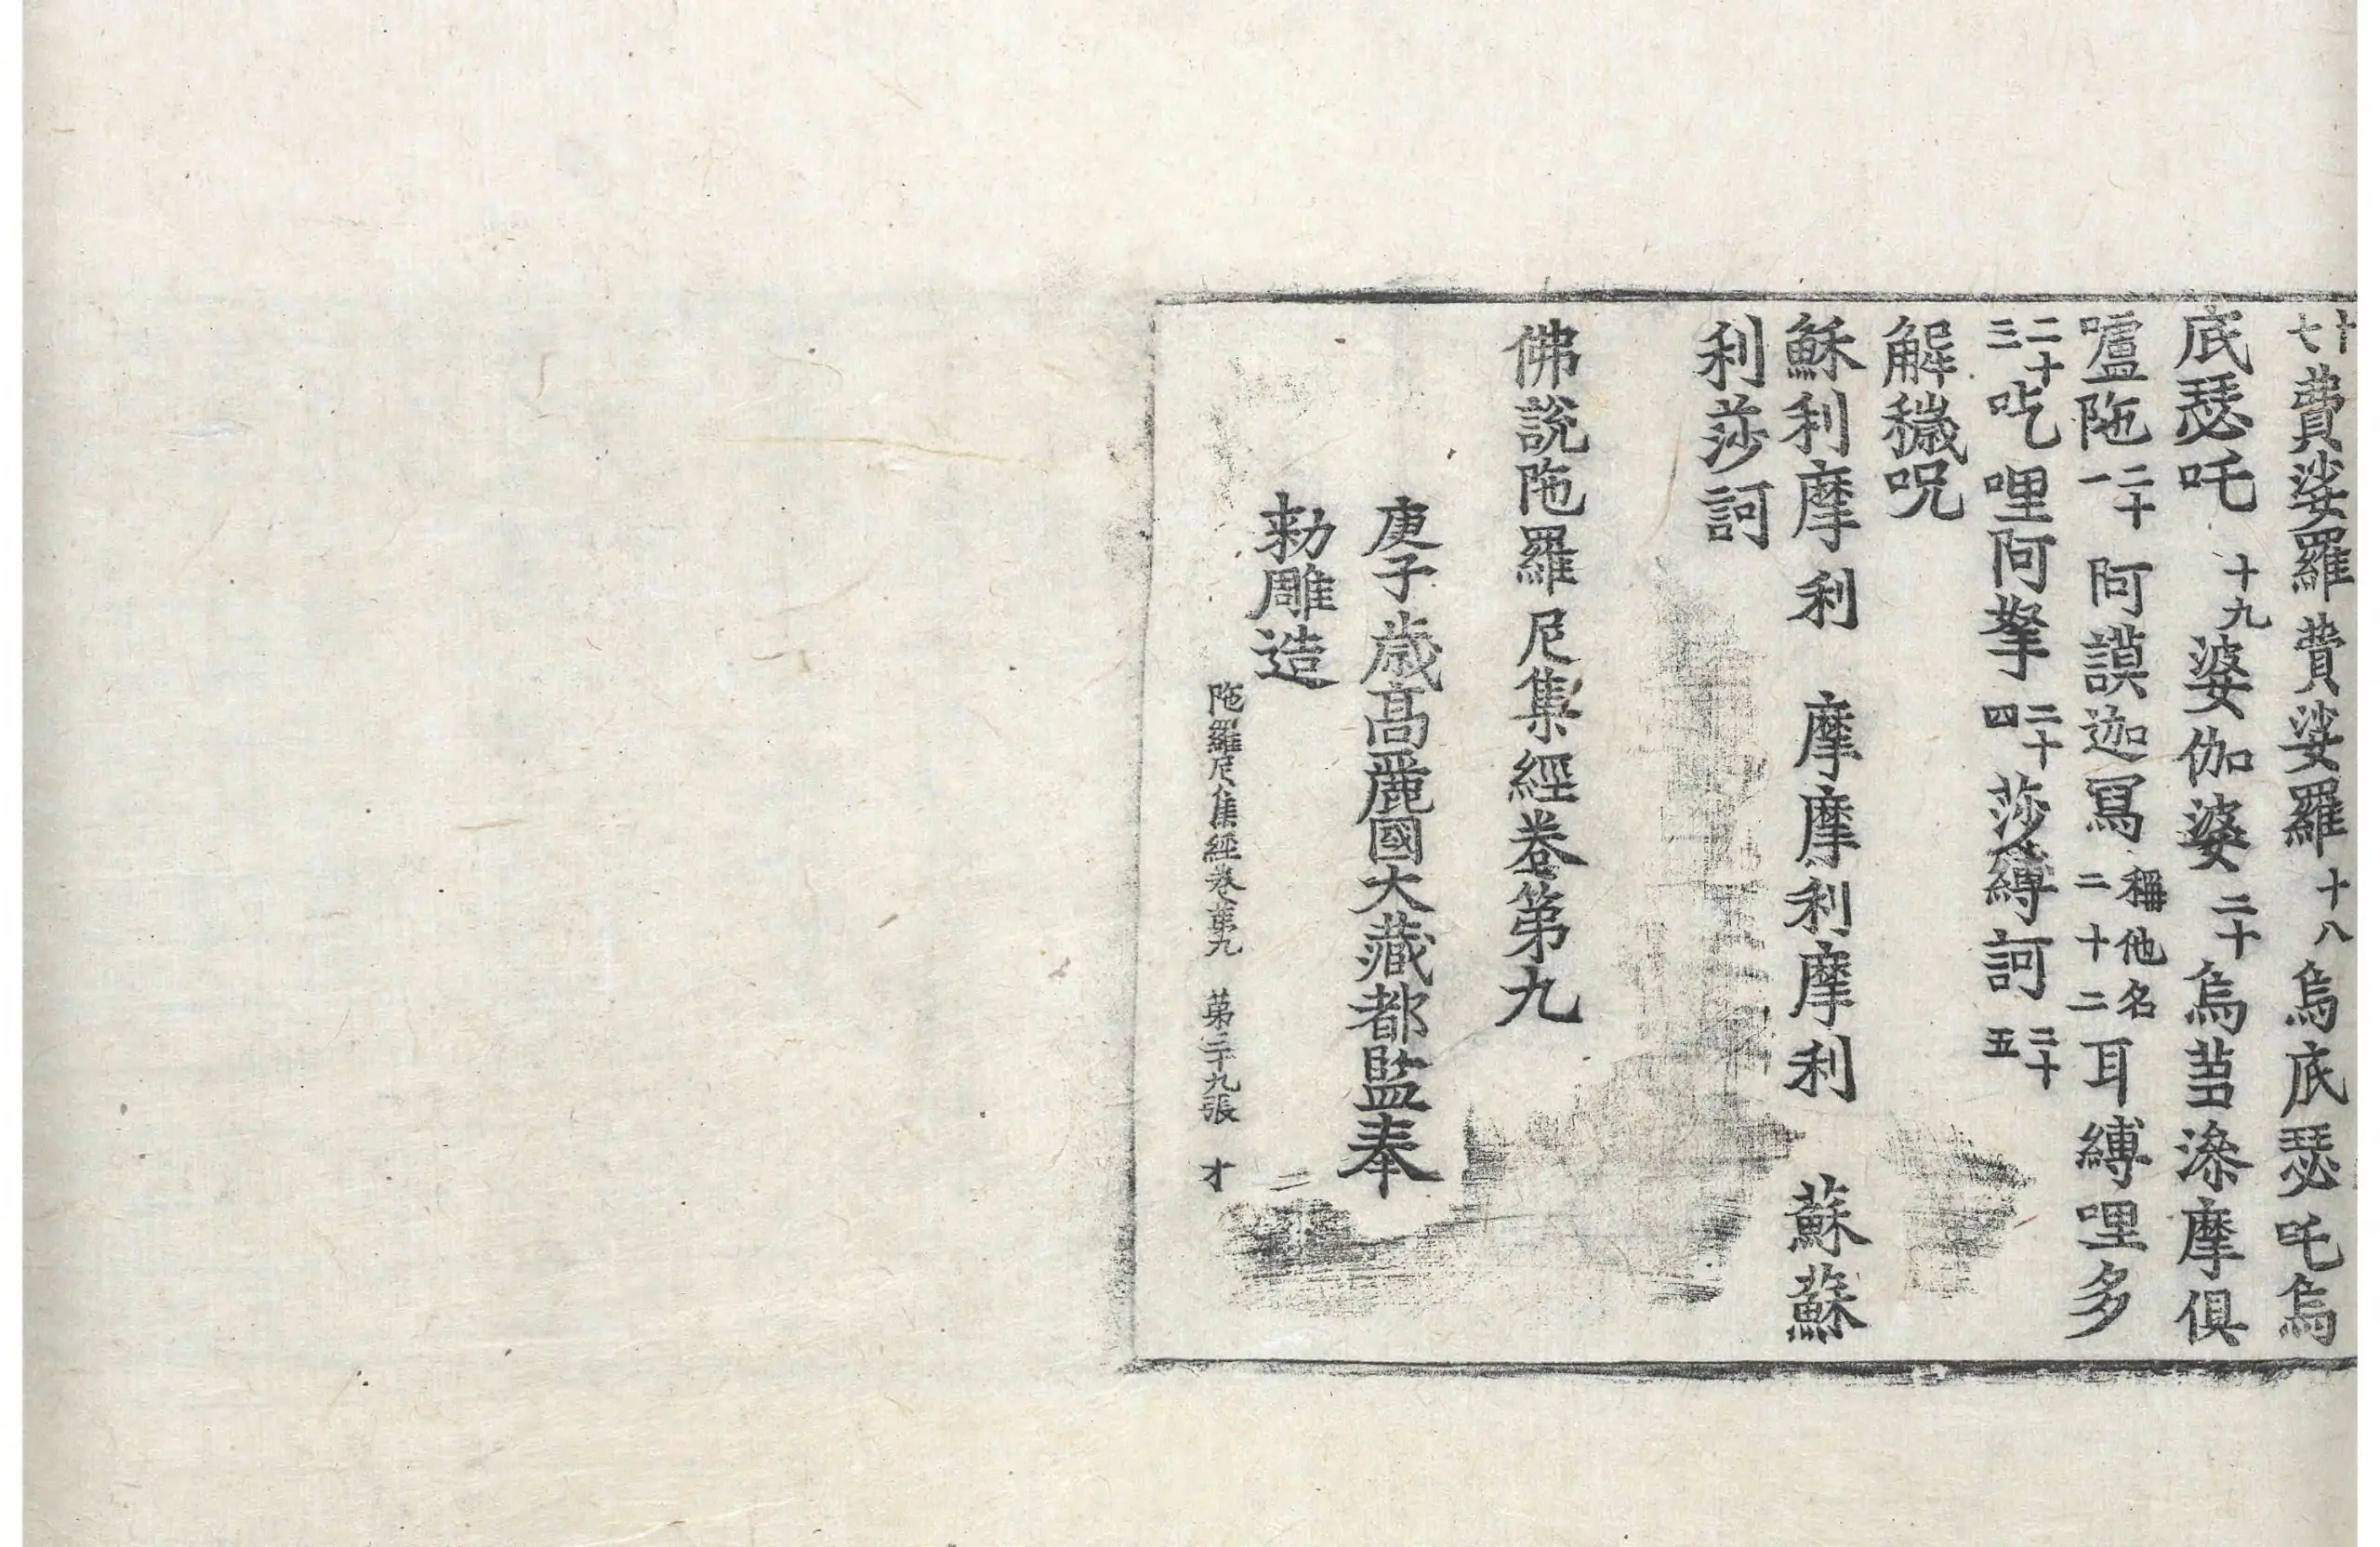 十七費娑羅費娑羅十八烏底瑟吒烏
底瑟吒十九婆伽婆二十烏䓪漛摩俱
嚧陁二十一阿謨迦寫稱他名二十二耳縛哩多
二十三吃哩阿拏二十四莎縛訶二十五
解穢呪
蘇利摩利 摩摩利摩利 蘇蘇
利莎訶
佛說陁羅尼集經卷第九
庚子歲高麗國大藏都監奉
勅雕造
陁羅尼集經卷第九 第二十九張 才